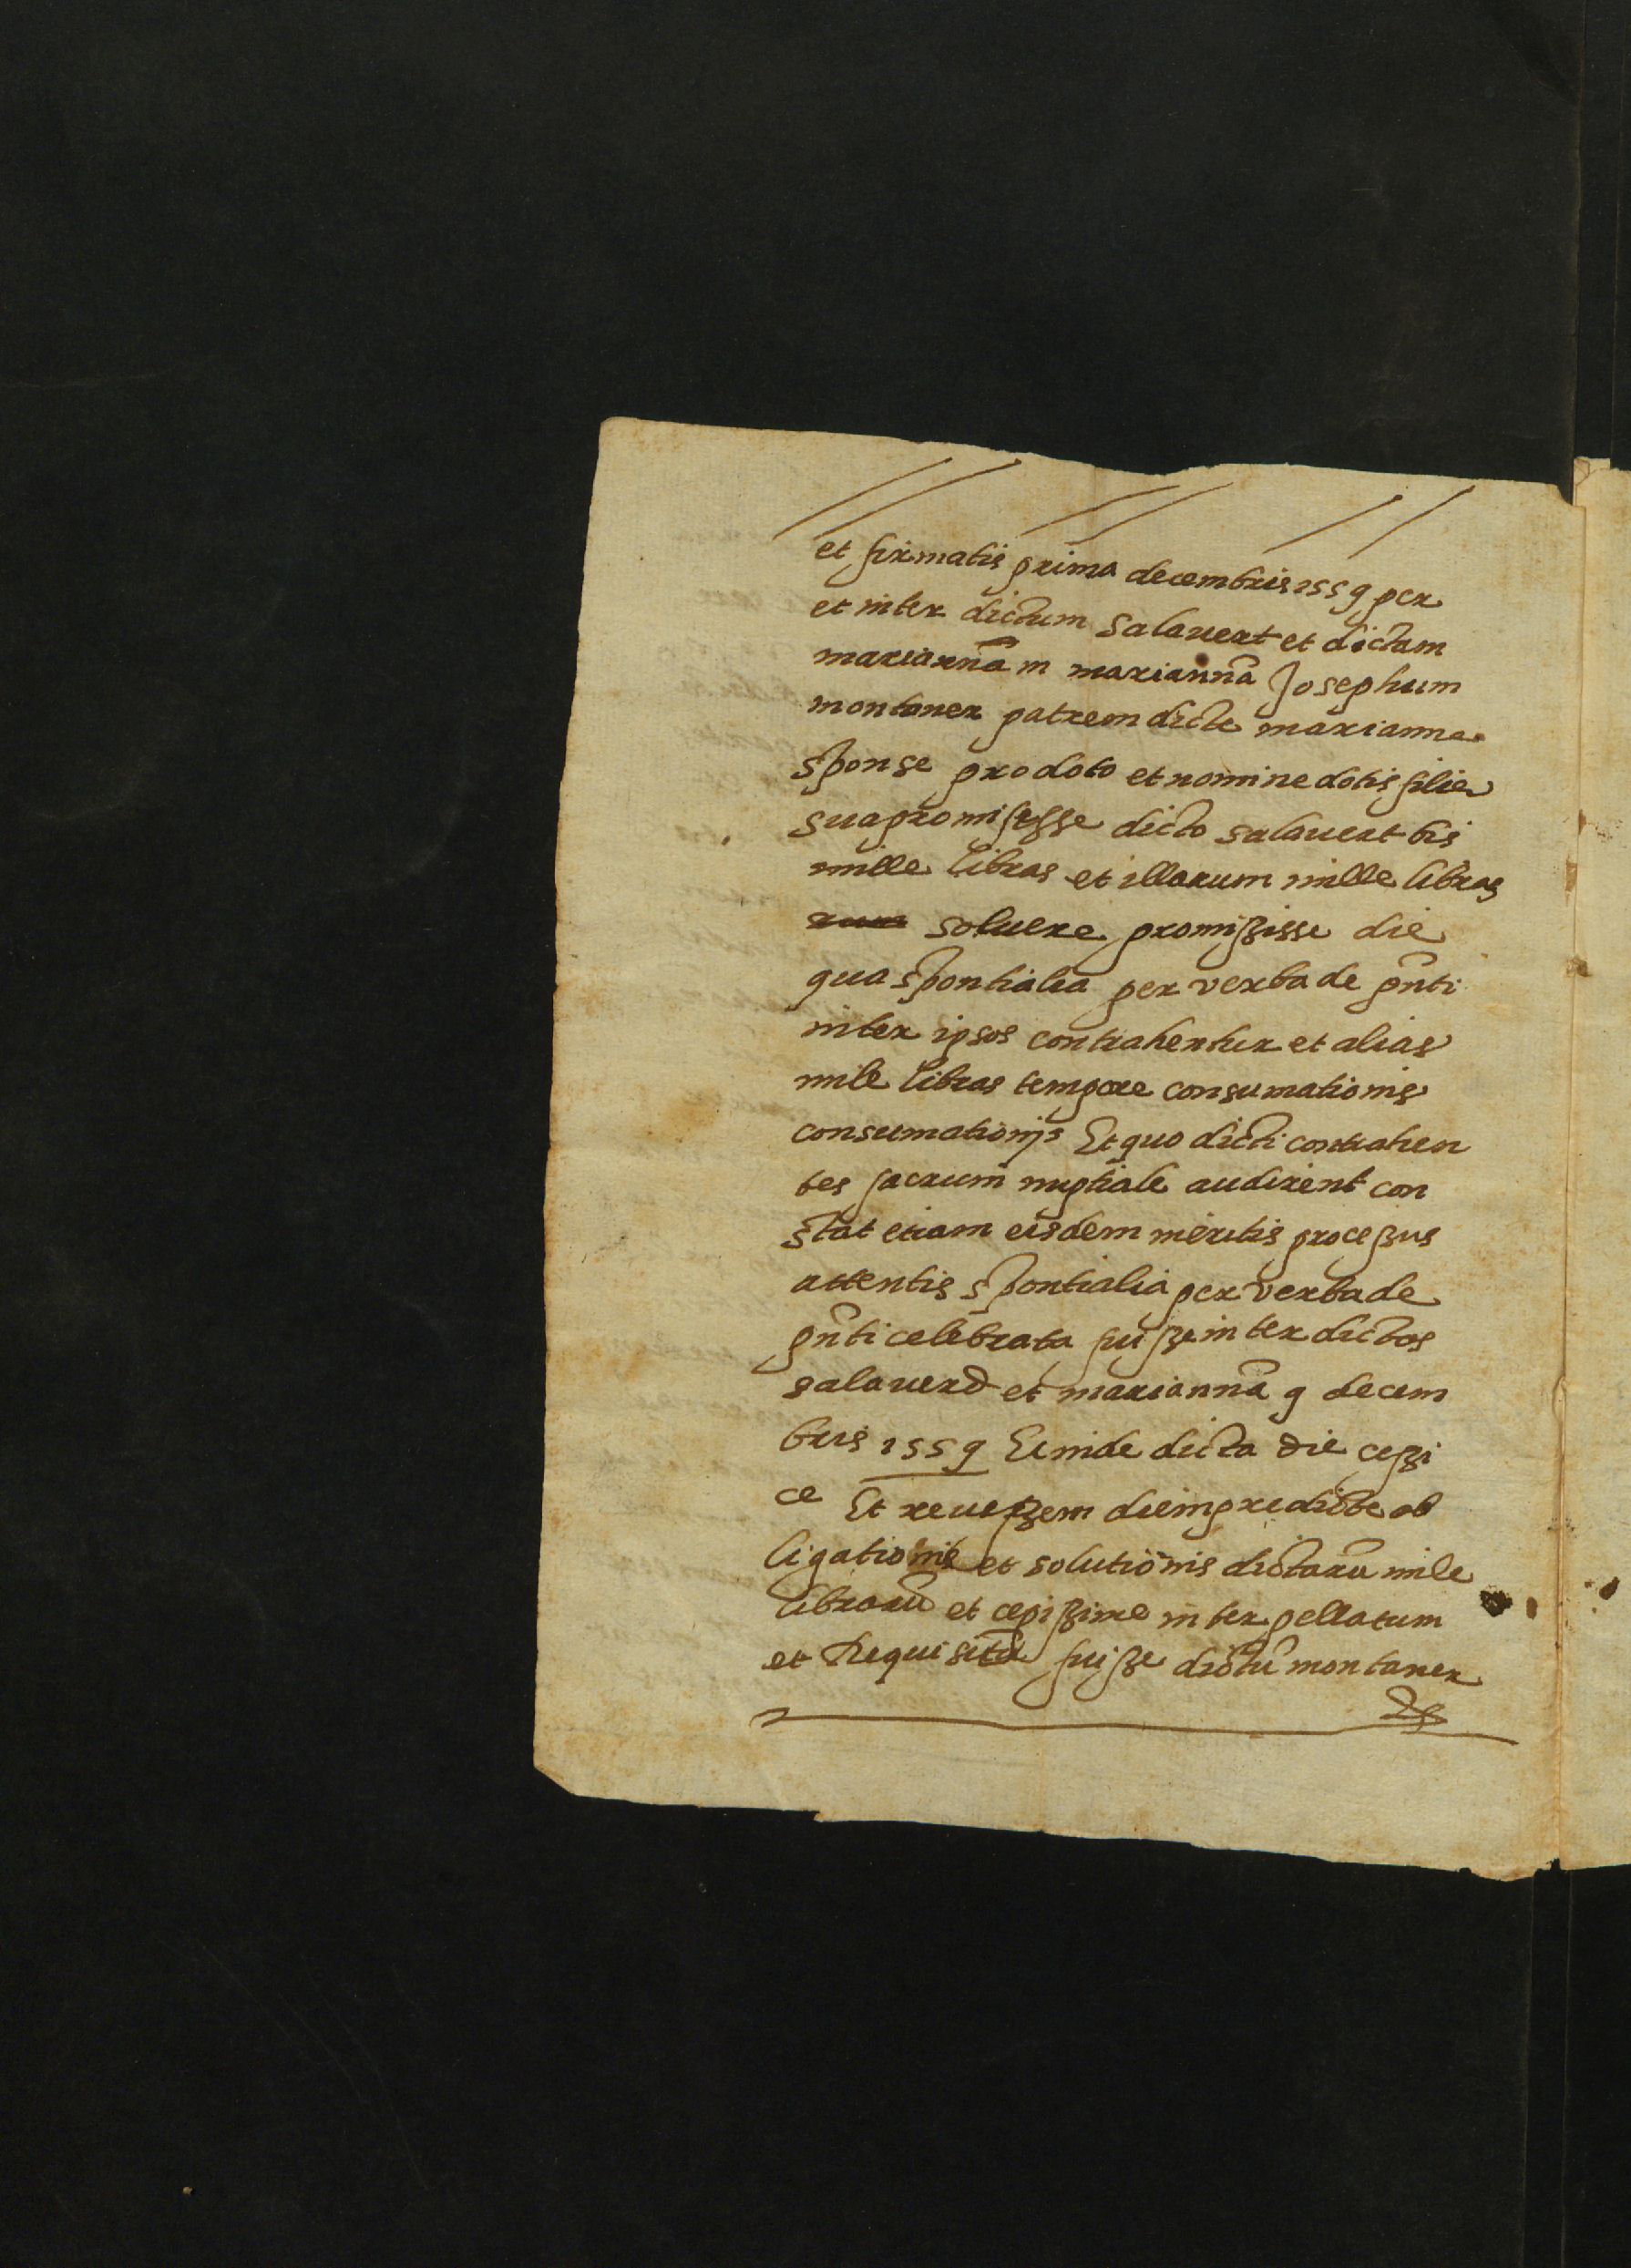 et firmatis prima decembris 1559 per
et inter dictum salauert et dictam
mariannā m mariannā Josephum
montaner patrem dicte marianne
sponse pro doto et nomine dotis filie
sua promisesse dicto salauert bis
mille libras et illarum mille libras
soluere promißisse die
qua spontialia per verba de pn̄ti
inter ipsos contrahentur et alias
mile libras tempore consumationis
consumationis Et quo dicti contrahen
tes sacrum nuptiale audirent con
stat etiam eisdem meritis proceßus
attentis spontialia per verba de
pn̄ti celebrata fuiße inter dictos
salauerd et mariannā 9 decem
bris 1559 Et inde dicta die ceßi
ce Et die in predicte ob
ligationis et solutionis dictarū mile
librarū et cepißime inter pellatum
et Requisitū fuiße dictū montaner